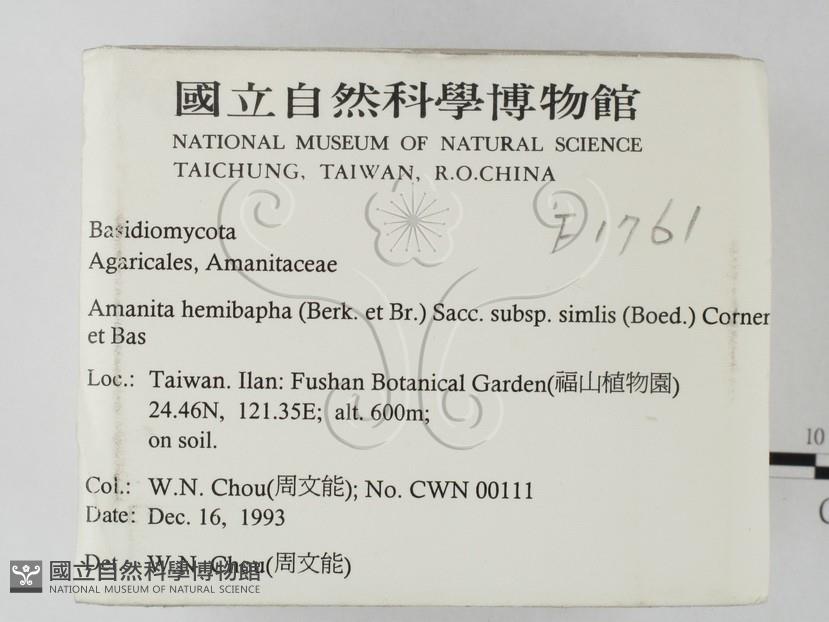 國立自然科學博物館
NATIONAL MUSEUM OF NATURAL SCIENCE
TAICHUNG, TAIWAN, R.O.CHINA
F1761
Basidiomycota
Agaricales, Amanitaceae
Amanita hemibapha (Berk. et Br.) Sacc. subsp. simlis (Boed.) Corner
et Bas
Loc.: Taiwan. Ilan: Fushan Botanical Garden(福山植物園)
24.46N, 121.35E; alt. 600m;
on soil.
Col.: W.N. Chou(周文能); No. CWN 00111
Date: Dec. 16, 1993
Det.: W.N. Chou(周文能)
國立自然科學博物館
NATIONAL MUSEUM OF NATURAL SCIENCE
10